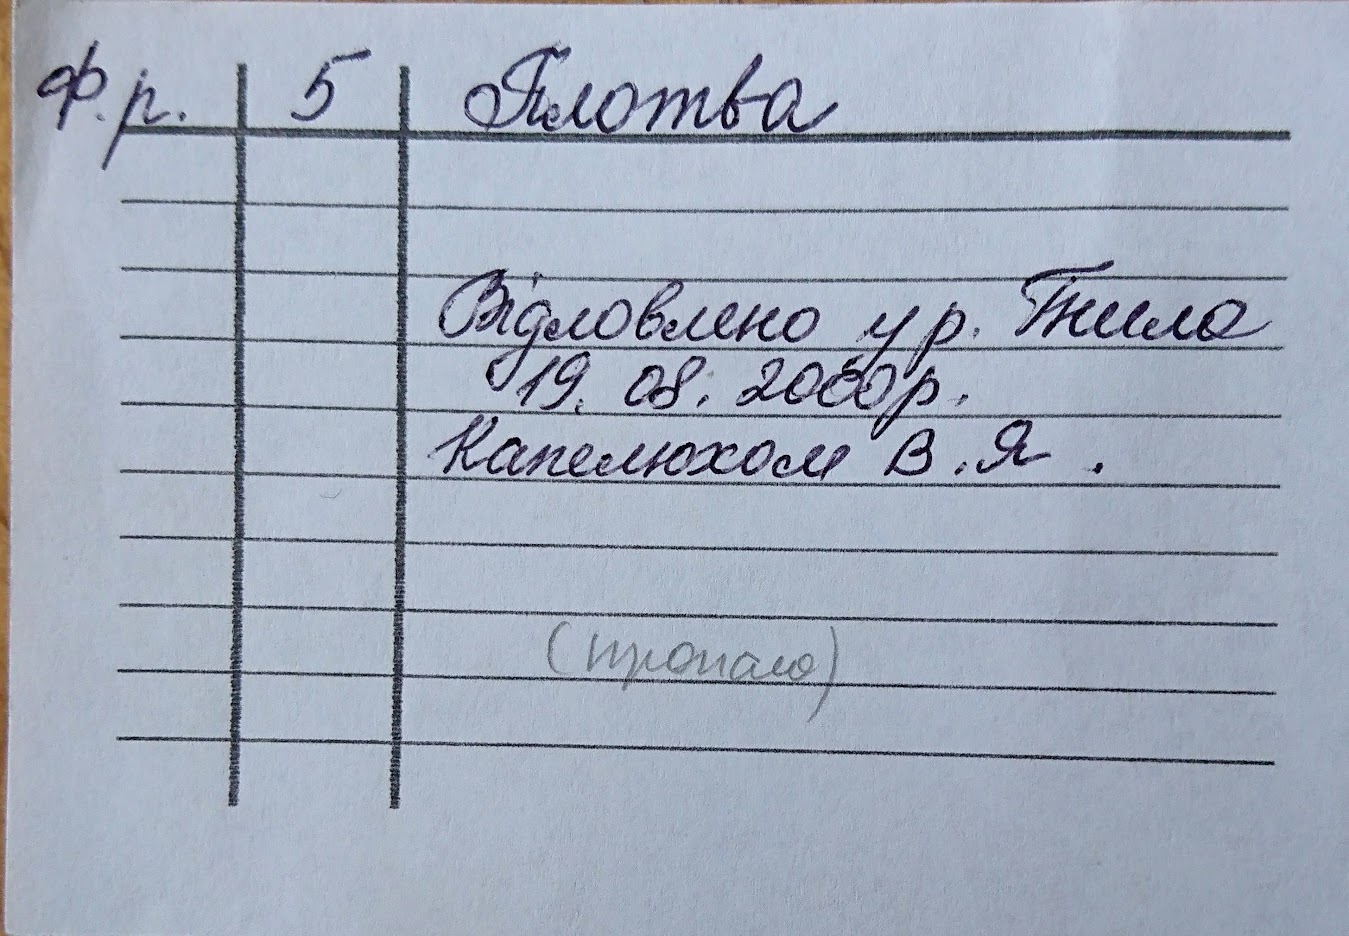 Ф.р. 5 Плотва
Відловлено у р. Гнила
19. 08. 2000р.
Капелюхом В.Я.
(пропало)